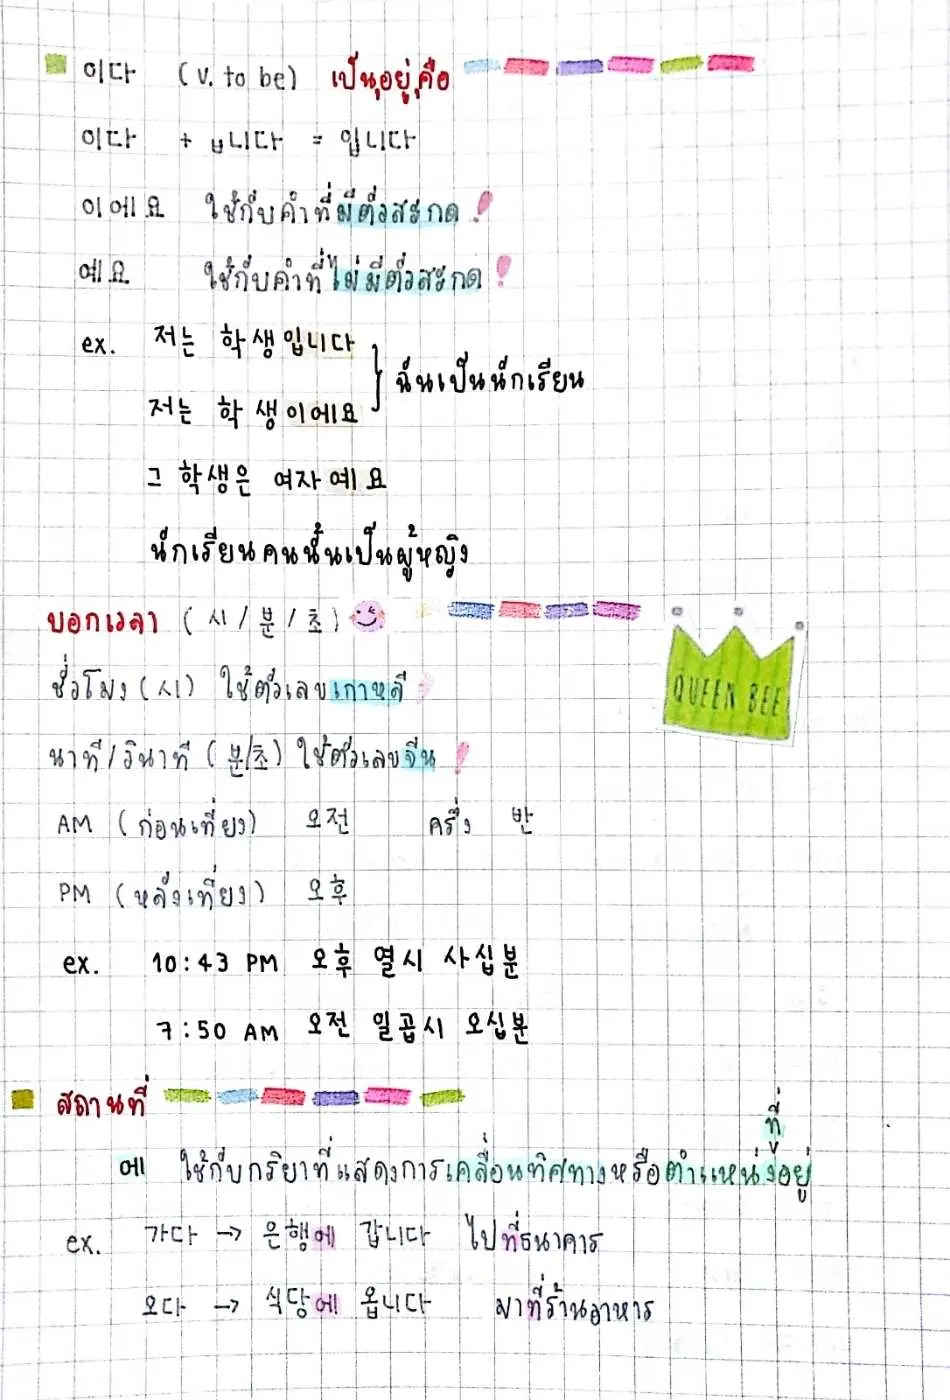 이다 (v. to be) เป็น,อยู่,คือ
이다 + ㅂ니다 = 입니다
이에요 ใช้กับคำที่มีตัวสะกด!
예요 ใช้กับคำที่ไม่มีตัวสะกด!
ex. 저는 학생입니다
저는 학생이에요
} ฉันเป็นนักเรียน
그 학생은 여자예요
นักเรียนคนนั้นเป็นผู้หญิง
บอกเวลา (시/분/초)
ชั่วโมง (시) ใช้ตัวเลขเกาหลี!
QUEEN BEE
นาที/วินาที (분/초) ใช้ตัวเลขจีน!
AM (ก่อนเที่ยง) 오전 ครึ่ง 반
PM (หลังเที่ยง) 오후
ex. 10:43 PM 오후 열시 사십분
7:50 AM 오전 일곱시 오십분
สถานที่
에 ใช้กับกริยาที่แสดงการเคลื่อนทิศทางหรือตำแหน่งที่อยู่
ex. 가다 → 은행에 갑니다 ไปที่ธนาคาร
오다 → 식당에 옵니다 มาที่ร้านอาหาร